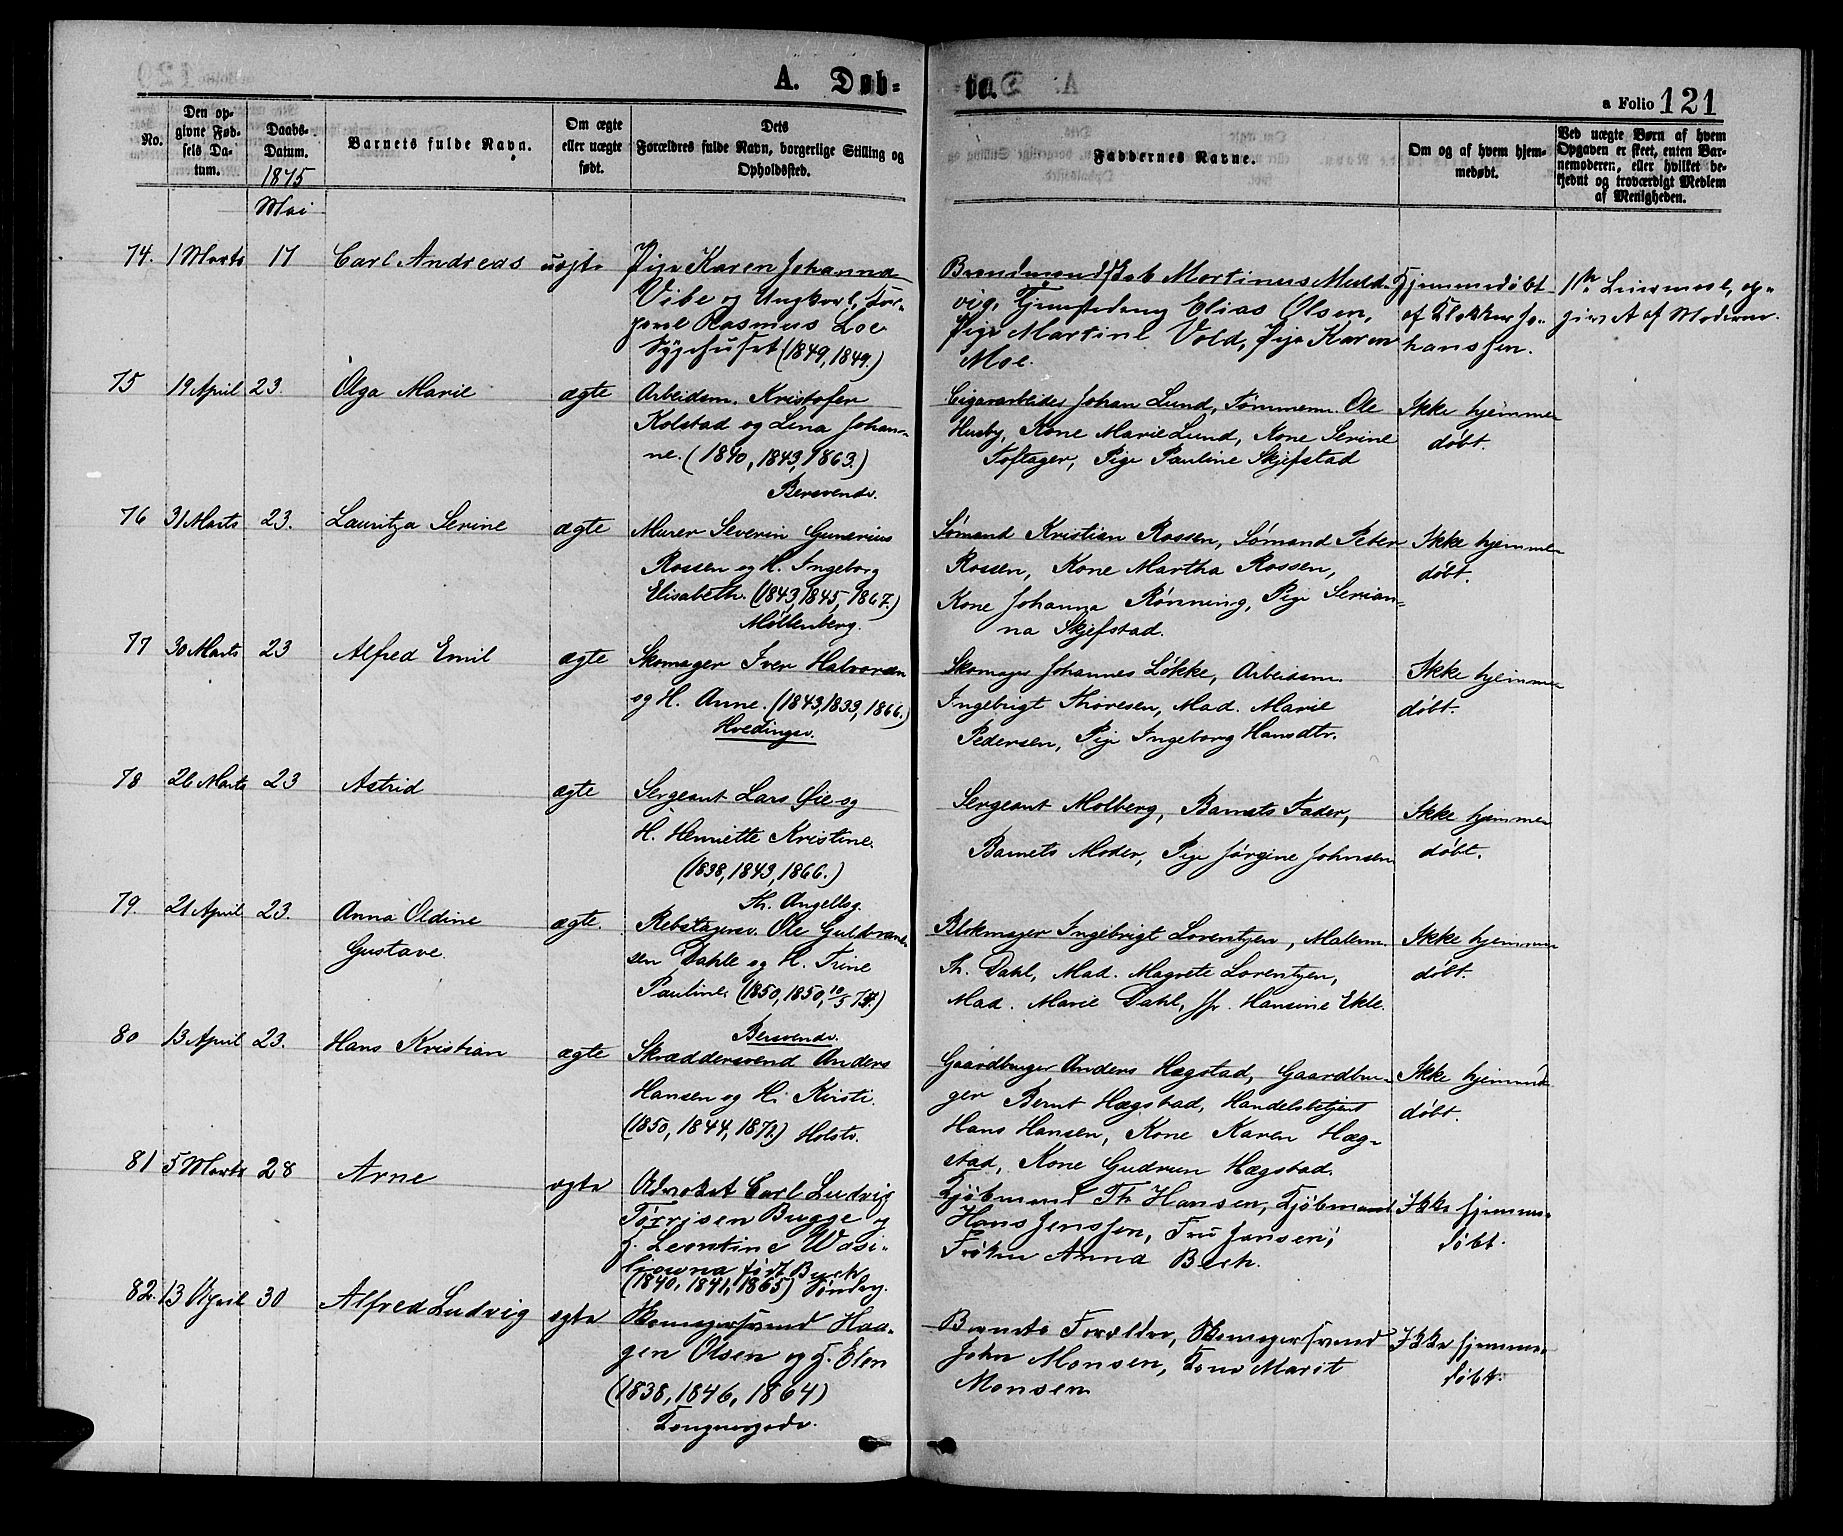 A. Døb-
te.
a Folio 121
No.
Den op-
givne Fød-
sels Da-
tum.
Daabs-
Datum.
1875
Mai
Barnets fulde Navn.
Om ægte
eller uægte
født.
Dets
Forældres fulde Navn, borgerlige Stilling og
Opholdssted.
Faddernes Navne.
Om og af hvem hjem-
medøbt.
Ved uægte Børn af hvem
Opgaven er skeet, enten Bar-
nemoderen, eller hvilket be-
kjendt og troværdigt Medlem
af Menigheden.
74. 1 Marts 17 Carl Andreas uægte
Pige Karen Johanna
Vibe og Ungkarl,
Rasmus Loe
Sygehuset (1849, 1849.)
Martinus Muld-
vig, Elias Olsen,
Pige Martine Vold, Pige Karen
Moe.
Hjemmedøbt
af Klokker Jo-
hanssen.
op-
givet af Moderen.
75 19 April 23. Olga Marie ægte
Arbeidsm. Kristofer
Kolstad og Lina Johan-
ne. (1840, 1843, 1863.)
Bersvendv.
Cigararbeider Johan Lund, Tømmerm. Ole
Husby, Kone Marie Lund, Kone Serine
Toftager, Pige Pauline Skjefstad
Ikke hjemme
døbt.
76 31 Marts 23. Lauritza Serine ægte
Murer Severin Gunerius
Rossen og H. Ingeborg
Elisabeth. (1843, 1845, 1867.)
Møllenberg.
Sømand Kristian Rossen, Sømand Peter
Rossen, Kone Martha Rossen,
Kone Johanna Rønning, Pige Serian-
na Skjefstad.
Ikke hjemme
døbt.
77 30 Marts 23 Alfred Emil ægte
Skomager Iver Halvorsen
og H. Anne. (1843, 1833, 1866.)
Hvedingsv.
Skomager Johannes Løkke, Arbeidsm.
Ingebrigt Thoresen, Mad. Marie
Pedersen, Pige Ingeborg Hansdtr.
Ikke hjemme
døbt.
78 26 Marts 23 Astrid ægte
Sergeant Lars Øie og
H. Henriette Kristine.
(1838, 1843, 1866.)
Th. Angellsg.
Sergeant Molberg, Barnets Fader,
Barnets Moder, Pige Jørgine Johnsen
Ikke hjemme
døbt.
79. 21 April 23. Anna Oldine
Gustave.
ægte.
Rebslagersv. Ole Guldbrand-
sen Dahle og H. Trine
Pauline. (1850, 1850, 10/5 74.)
Bersvendv.
Blokmager Ingebrigt Lorentzen, Malerm.
Th. Dahl, Mad. Magrete Lorentzen,
Mad. Marie Dahl, Jfr. Hansine Ekle.
Ikke hjemme
døbt.
80 13 April 23. Hans Kristian ægte
Skræddersvend Anders
Hansen og H. Kirsti.
(1850, 1844, 1872.) Holstv.
Gaardbruger Anders Hægstad, Gaardbru-
ger Bernt Hægstad, Handelsbetjent
Hans Hansen, Kone Karen Hæg-
stad, Kone Gudrun Hægstad.
Ikke hjemme
døbt.
81 5 Marts 28 Arne ægte
Advokat Carl Ludvig
Tørrisen Bugge og
H. Leontine Wasi-
liowna født Buck
(1840, 1841, 1865) Søndreg.
Kjøbmand Th Hansen, Kjøbmand
Hans Jenssen, Fru Jansen,
Frøken Anna Beck.
Ikke hjemme-
døbt.
82. 13 April 30 Alfred Ludvig ægte
Skomagersvend Haa-
gen Olsen og H. Elen
(1838, 1846, 1864)
Kongensgade.
Barnets Forældre, Skomagersvend
John Monsen, Kone Marit
Monsen
Ikke hjemme-
døbt.